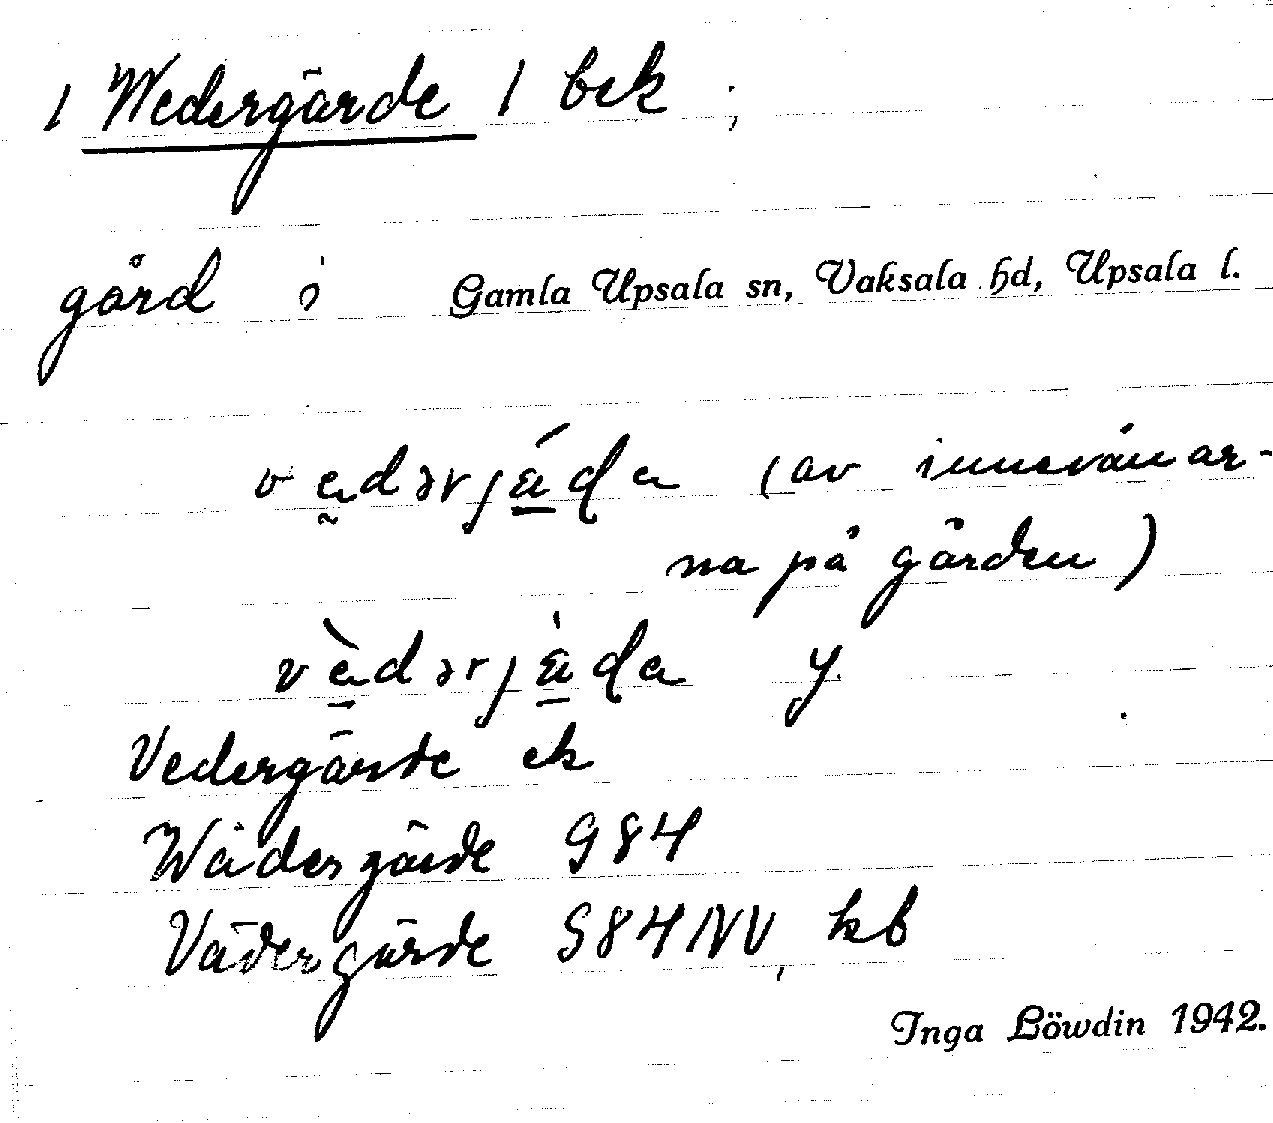 1 Wedergärde 1 bek ;
gård i Gamla Upsala sn, Vaksala hd, Upsala l.
vedərjäda (av innevånar-
na på gården)
vèdərjäda y.
Vedergärde ek
Wädergärde G84
Vädergärde S84NV, kb
Inga Löwdin 1942.